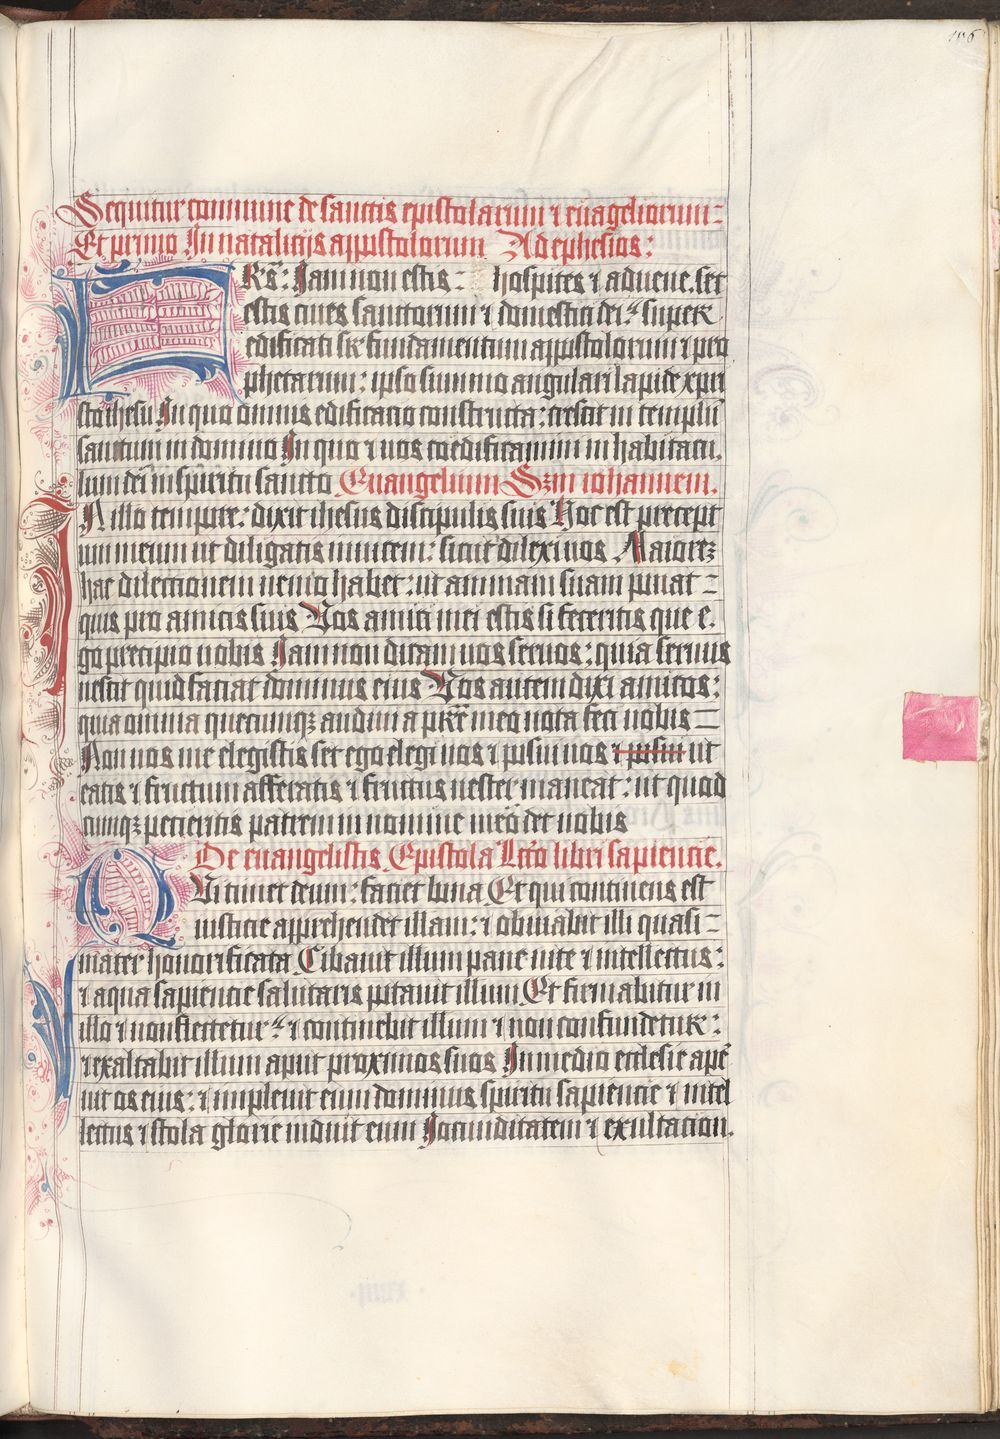 116
Sequitur commune de sanctis epistolarum ⁊ euãgeliorum
Et primo In natalicijs appostolorum Ad ephesios:
FRẽs: Iam non estis: hospites ⁊ aduene. set
estis ciues sanctorum ⁊ domestici dei: super
edificati sr fundamentum appostolorum ⁊ pro
phetarum: ipso summo angulari lapide xpri
sto ihesu In quo omnis edificatio constructa: crescit in templũ
sanctum in domino In quo ⁊ uos coedificamini in habitacu.
lum dei in spiritu sancto Euangelium Szm iohannem.
IN illo tempore: dixit ihesus discipulis suis Hoc est precept
um meum ut diligatis inuicem: sicut dilexi uos Maiorez
hac dilectionem nemo habet: ut animam suam ponat
quis pro amicis suis Vos amici mei estis si feceritis que e.
go precipio uobis Iam non dicam uos seruos: quia seruus
nescit quid faciat dominus eius Vos autem dixi amicos:
quia omnia quecunqz audiui a prẽ meo nota feci uobis
Non uos me elegistis set ego elegi uos ⁊ posui uos ⁊ posui ut
eatis ⁊ fructum afferatis ⁊ fructus uester maneat: ut quod
cunqz pecieritis patrem in nomine meo det uobis
De euangelistis Epistola Lc̃o libri sapiencie.
QVi timet deum: faciet bona Et qui continens est
iusticie apprehendet illam: ⁊ obuiabit illi quasi
mater honorificata Cibauit illum pane uite ⁊ intellectus:
⁊ aqua sapiencie salutaris potauit illum Et firmabitur in
illo ⁊ non flectetur: ⁊ continebit illum ⁊ non confundetur:
⁊ exaltabit illum aput proximos suos In medio ecclesie apẽ
uit os eius: ⁊ impleuit eum dominus spiritu sapiencie ⁊ intel
lectus ⁊ stola glorie induit eum Iocunditatem ⁊ exultacion.